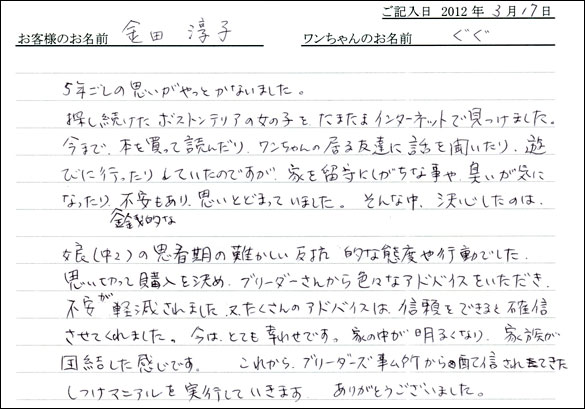 ご記入日 2012年 3月17日
お客様のお名前 金田 淳子 ワンちゃんのお名前 ぐぐ
5年ごしの思いがやっとかないました。
探し続けた ボストンテリアの女の子を たまたまインターネットで見つけました。
今まで、本を買って読んだり、ワンちゃんの居る友達に話を聞いたり、遊
びに行ったりしていたのですが、家を留守にしがちな事や、臭いが気に
なったり、不安もあり、思いとどまっていました。 そんな中、決心したのは、
金銭的な
娘(中2)の思春期の難かしい反抗 的な態度や行動でした。
思い切って購入を決め、ブリーダーさんから色々なアドバイスをいただき、
不安が軽減されました。又、たくさんのアドバイスは、信頼をできると確信
させてくれました。今は、とても幸わせです。家の中が明るくなり、家族が
団結した感じです。 これから、ブリーダーズ事ム所から配信されてきた
しつけマニアルを実行していきます。 ありがとうございました。